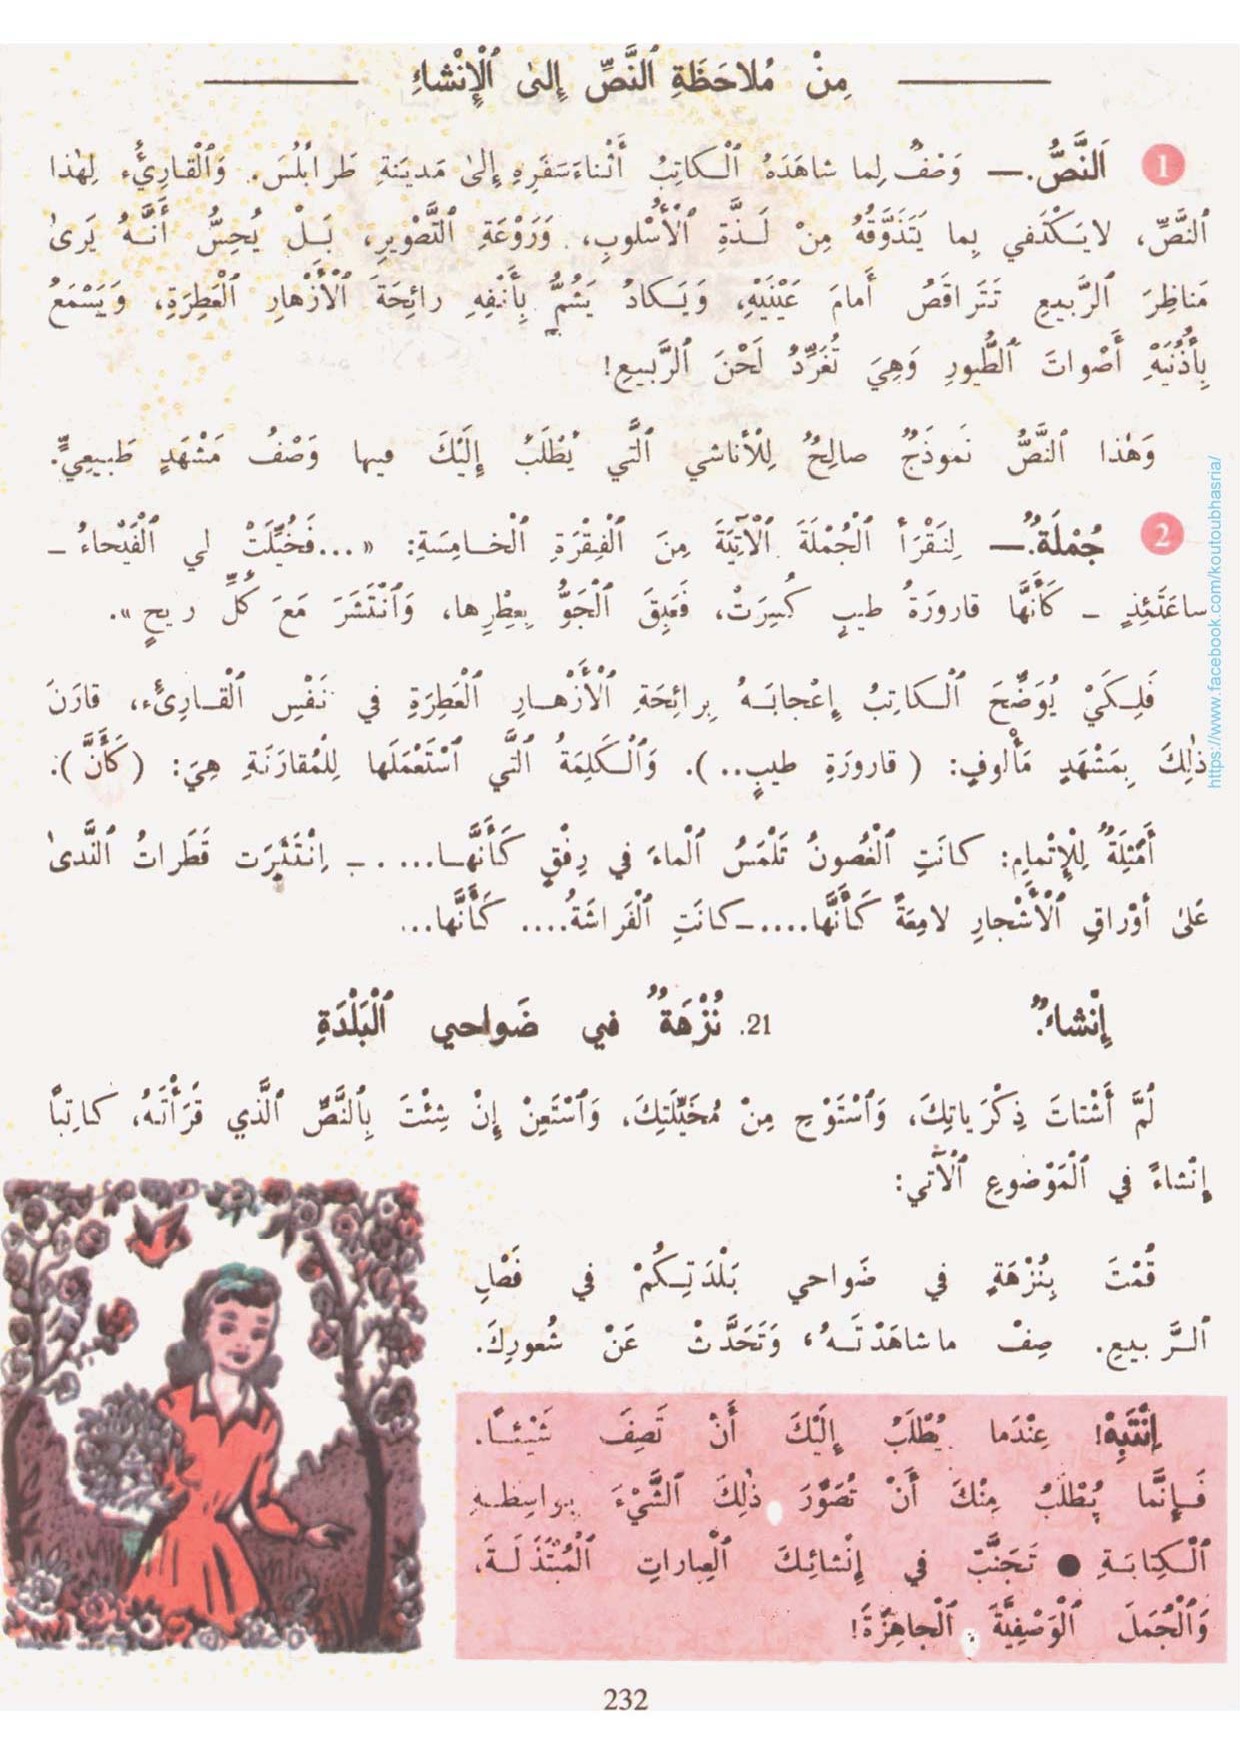 مِنْ مُلاحَظَةِ ٱلنَّصِّ إِلىٰ ٱلْإِنْشاءِ
1 اَلنَّصُّ.— وَصْفٌ لِما شاهَدَهُ ٱلْكاتِبُ أَثْناءَ سَفَرِهِ إِلىٰ مَدينَةِ طَرابُلُسَ. وَٱلْقارِئُ، لِهٰذا
ٱلنَّصِّ، لايَكْتَفي بِما يَتَذَوَّقُهُ مِنْ لَذَّةِ ٱلْأُسْلوبِ، وَرَوْعَةِ ٱلتَّصْويرِ، بَلْ يُحِسُّ أَنَّهُ يَرىٰ
مَناظِرَ ٱلرَّبيعِ تَتَراقَصُ أَمامَ عَيْنَيْهِ، وَيَكادُ يَشُمُّ بِأَنْفِهِ رائِحَةَ ٱلْأَزْهارِ ٱلْعَطِرَةِ، وَيَسْمَعُ
بِأُذُنَيْهِ أَصْواتَ ٱلطُّيورِ وَهِيَ تُغَرِّدُ لَحْنَ ٱلرَّبيعِ!
وَهٰذا ٱلنَّصُّ نَموذَجٌ صالِحٌ لِلْأَناشي ٱلَّتي يُطْلَبُ إِلَيْكَ فيها وَصْفُ مَشْهَدٍ طَبيعِيٍّ.
2 جُمْلَةٌ.— لِنَقْرَأ ٱلْجُمْلَةَ ٱلْآتِيَةَ مِنَ ٱلْفِقْرَةِ ٱلْخامِسَةِ: «...فَخُيِّلَتْ لي ٱلْفَيْحاءُ —
ساعَتَئِذٍ — كَأَنَّها قارورَةُ طيبٍ كُسِرَتْ، فَعَبِقَ ٱلْجَوُّ بِعِطْرِها، وَٱنْتَشَرَ مَعَ كُلِّ ريحٍ».
فَلِكَيْ يُوَضِّحَ ٱلْكاتِبُ إِعْجابَهُ بِرائِحَةِ ٱلْأَزْهارِ ٱلْعَطِرَةِ في نَفْسِ ٱلْقارِئِ، قارَنَ
ذٰلِكَ بِمَشْهَدٍ مَأْلوفٍ: (قارورَةِ طيبٍ..). وَٱلْكَلِمَةُ ٱلَّتي ٱسْتَعْمَلَها لِلْمُقارَنَةِ هِيَ: (كَأَنَّ).
أَمْثِلَةٌ لِلْإِتْمامِ: كانَتِ ٱلْغُصونُ تَلْمَسُ ٱلْماءَ في رِفْقٍ كَأَنَّها.... — اِنْتَثَرَت قَطَراتُ ٱلنَّدىٰ
عَلىٰ أَوْراقِ ٱلْأَشْجارِ لامِعَةً كَأَنَّها....—كانَتِ ٱلْفَراشَةُ.... كَأَنَّها...
إِنْشاءٌ 21. نُزْهَةٌ في ضَواحي ٱلْبَلْدَةِ
لُمَّ أَشْتاتَ ذِكْرَياتِكَ، وَٱسْتَوْحِ مِنْ مُخَيِّلَتِكَ، وَٱسْتَعِنْ إِنْ شِئْتَ بِٱلنَّصِّ ٱلَّذي قَرَأْتَهُ، كاتِبًا
إِنْشاءً في ٱلْمَوْضوعِ ٱلْآتي:
قُمْتَ بِنُزْهَةٍ في ضَواحي بَلْدَتِكُمْ في فَصْلِ
ٱلرَّبيعِ. صِفْ ماشاهَدْتَهُ، وَتَحَدَّثْ عَنْ شُعورِكَ.
اِنْتَبِهْ! عِنْدَما يُطْلَبُ إِلَيْكَ أَنْ تَصِفَ شَيْئًا.
فَإِنَّما يُطْلَبُ مِنْكَ أَنْ تُصَوِّرَ ذٰلِكَ ٱلشَّيْءَ بِواسِطَةِ
ٱلْكِتابَةِ ● تَجَنَّبْ في إِنْشائِكَ ٱلْعِباراتِ ٱلْمُبْتَذَلَةَ،
وَٱلْجُمَلَ ٱلْوَصْفِيَّةَ ٱلْجاهِزَةَ!
232
https://www.facebook.com/koutoubhasria/